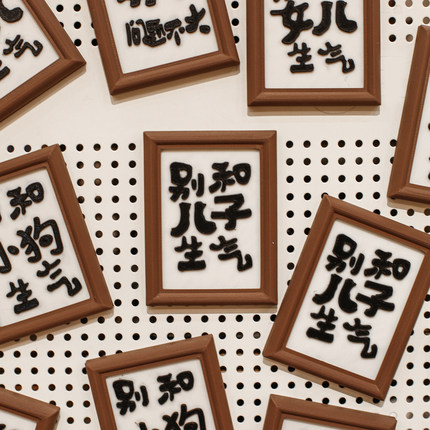 问题不大
女儿
生气
别和
儿子
生气
和
小狗
生气
别和
儿子
生气
别和
小狗